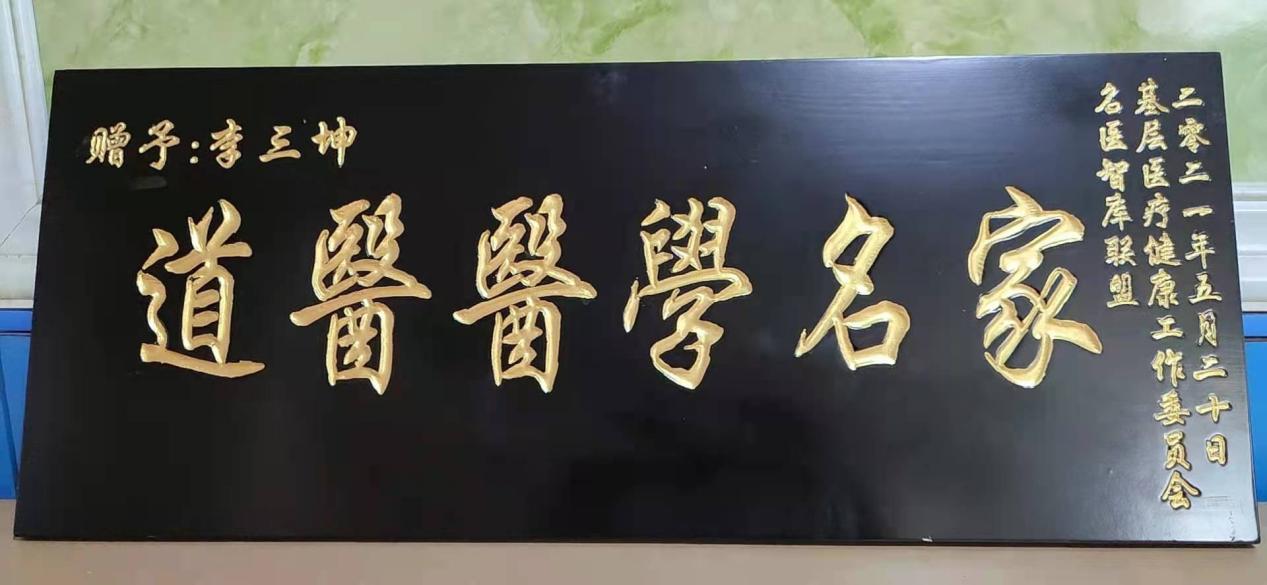 赠予:李三坤
道醫醫學名家
二零二一年五月二十日
基层医疗健康工作委员会
名医智库联盟